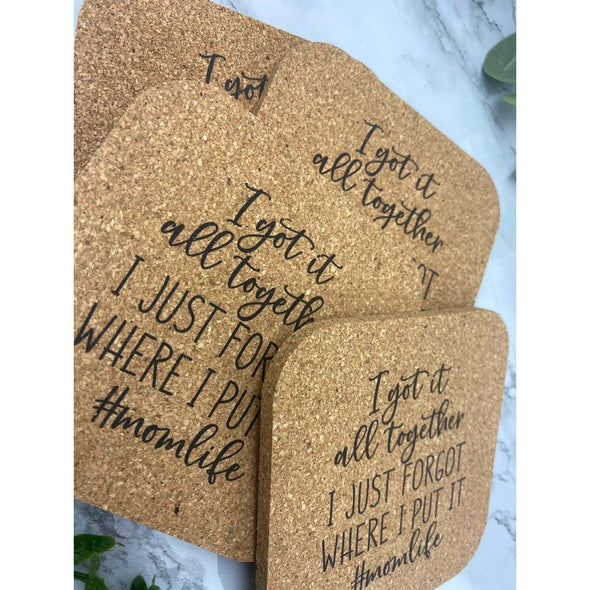 I got
I got it
all together
I got it
all together
I JUST FOR
WHERE I PUT
#momlife
I got it
all together
I JUST FORGOT
WHERE I PUT IT
#momlife